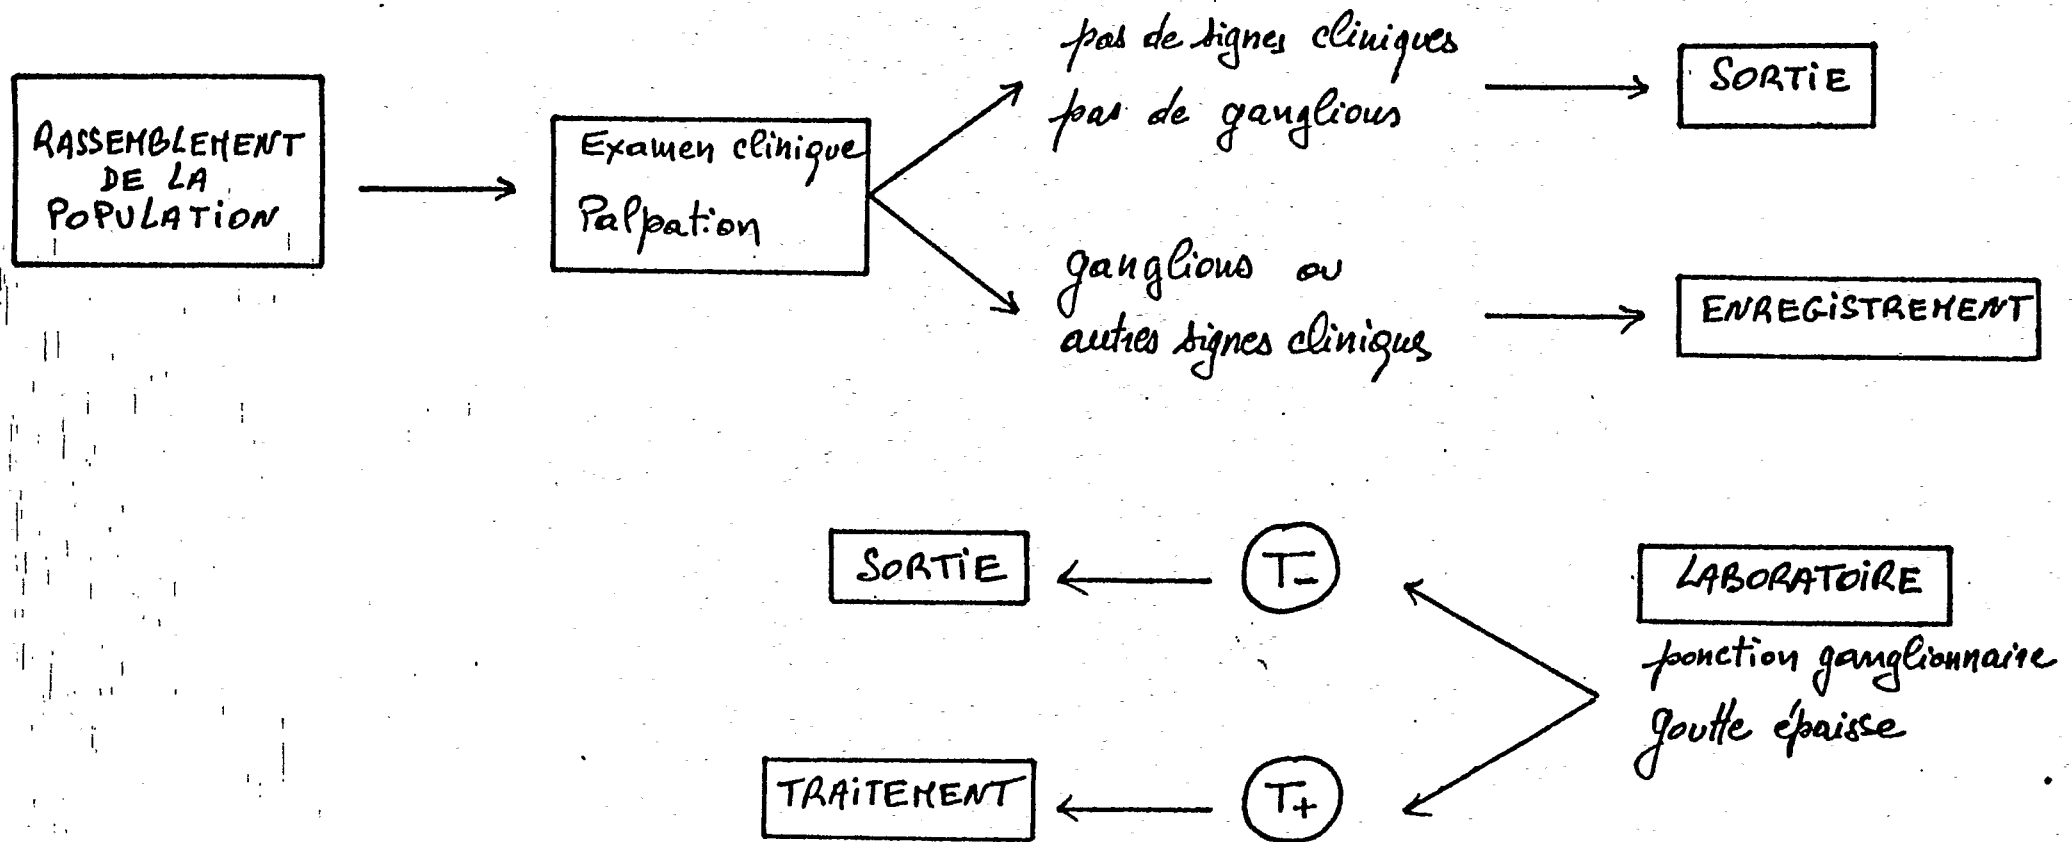 RASSEMBLEMENT
DE LA
POPULATION
Examen clinique
Palpation
pas de signes cliniques
pas de ganglions
SORTIE
ganglions ou
autres signes cliniques
ENREGISTREMENT
SORTIE
T-
LABORATOIRE
ponction ganglionnaire
goutte épaisse
TRAITEMENT
T+